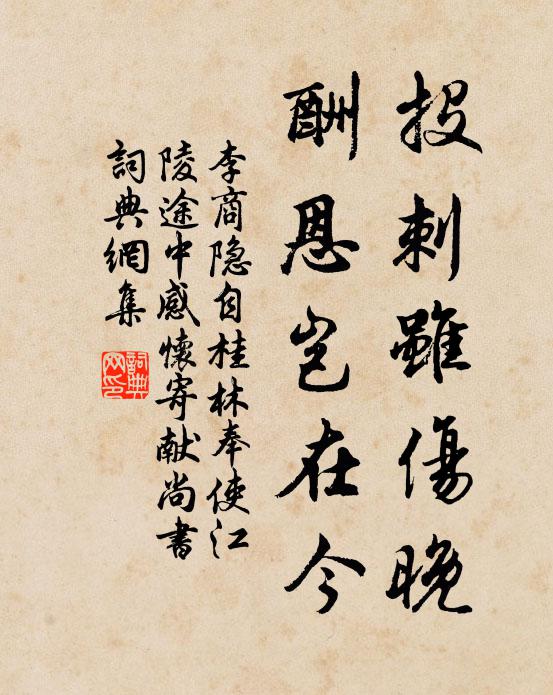 投刺雖傷晚
酬恩岂在今
李商隐自桂林奉使江
陵途中感懷寄献尚書
詞典網集
詞典
网印